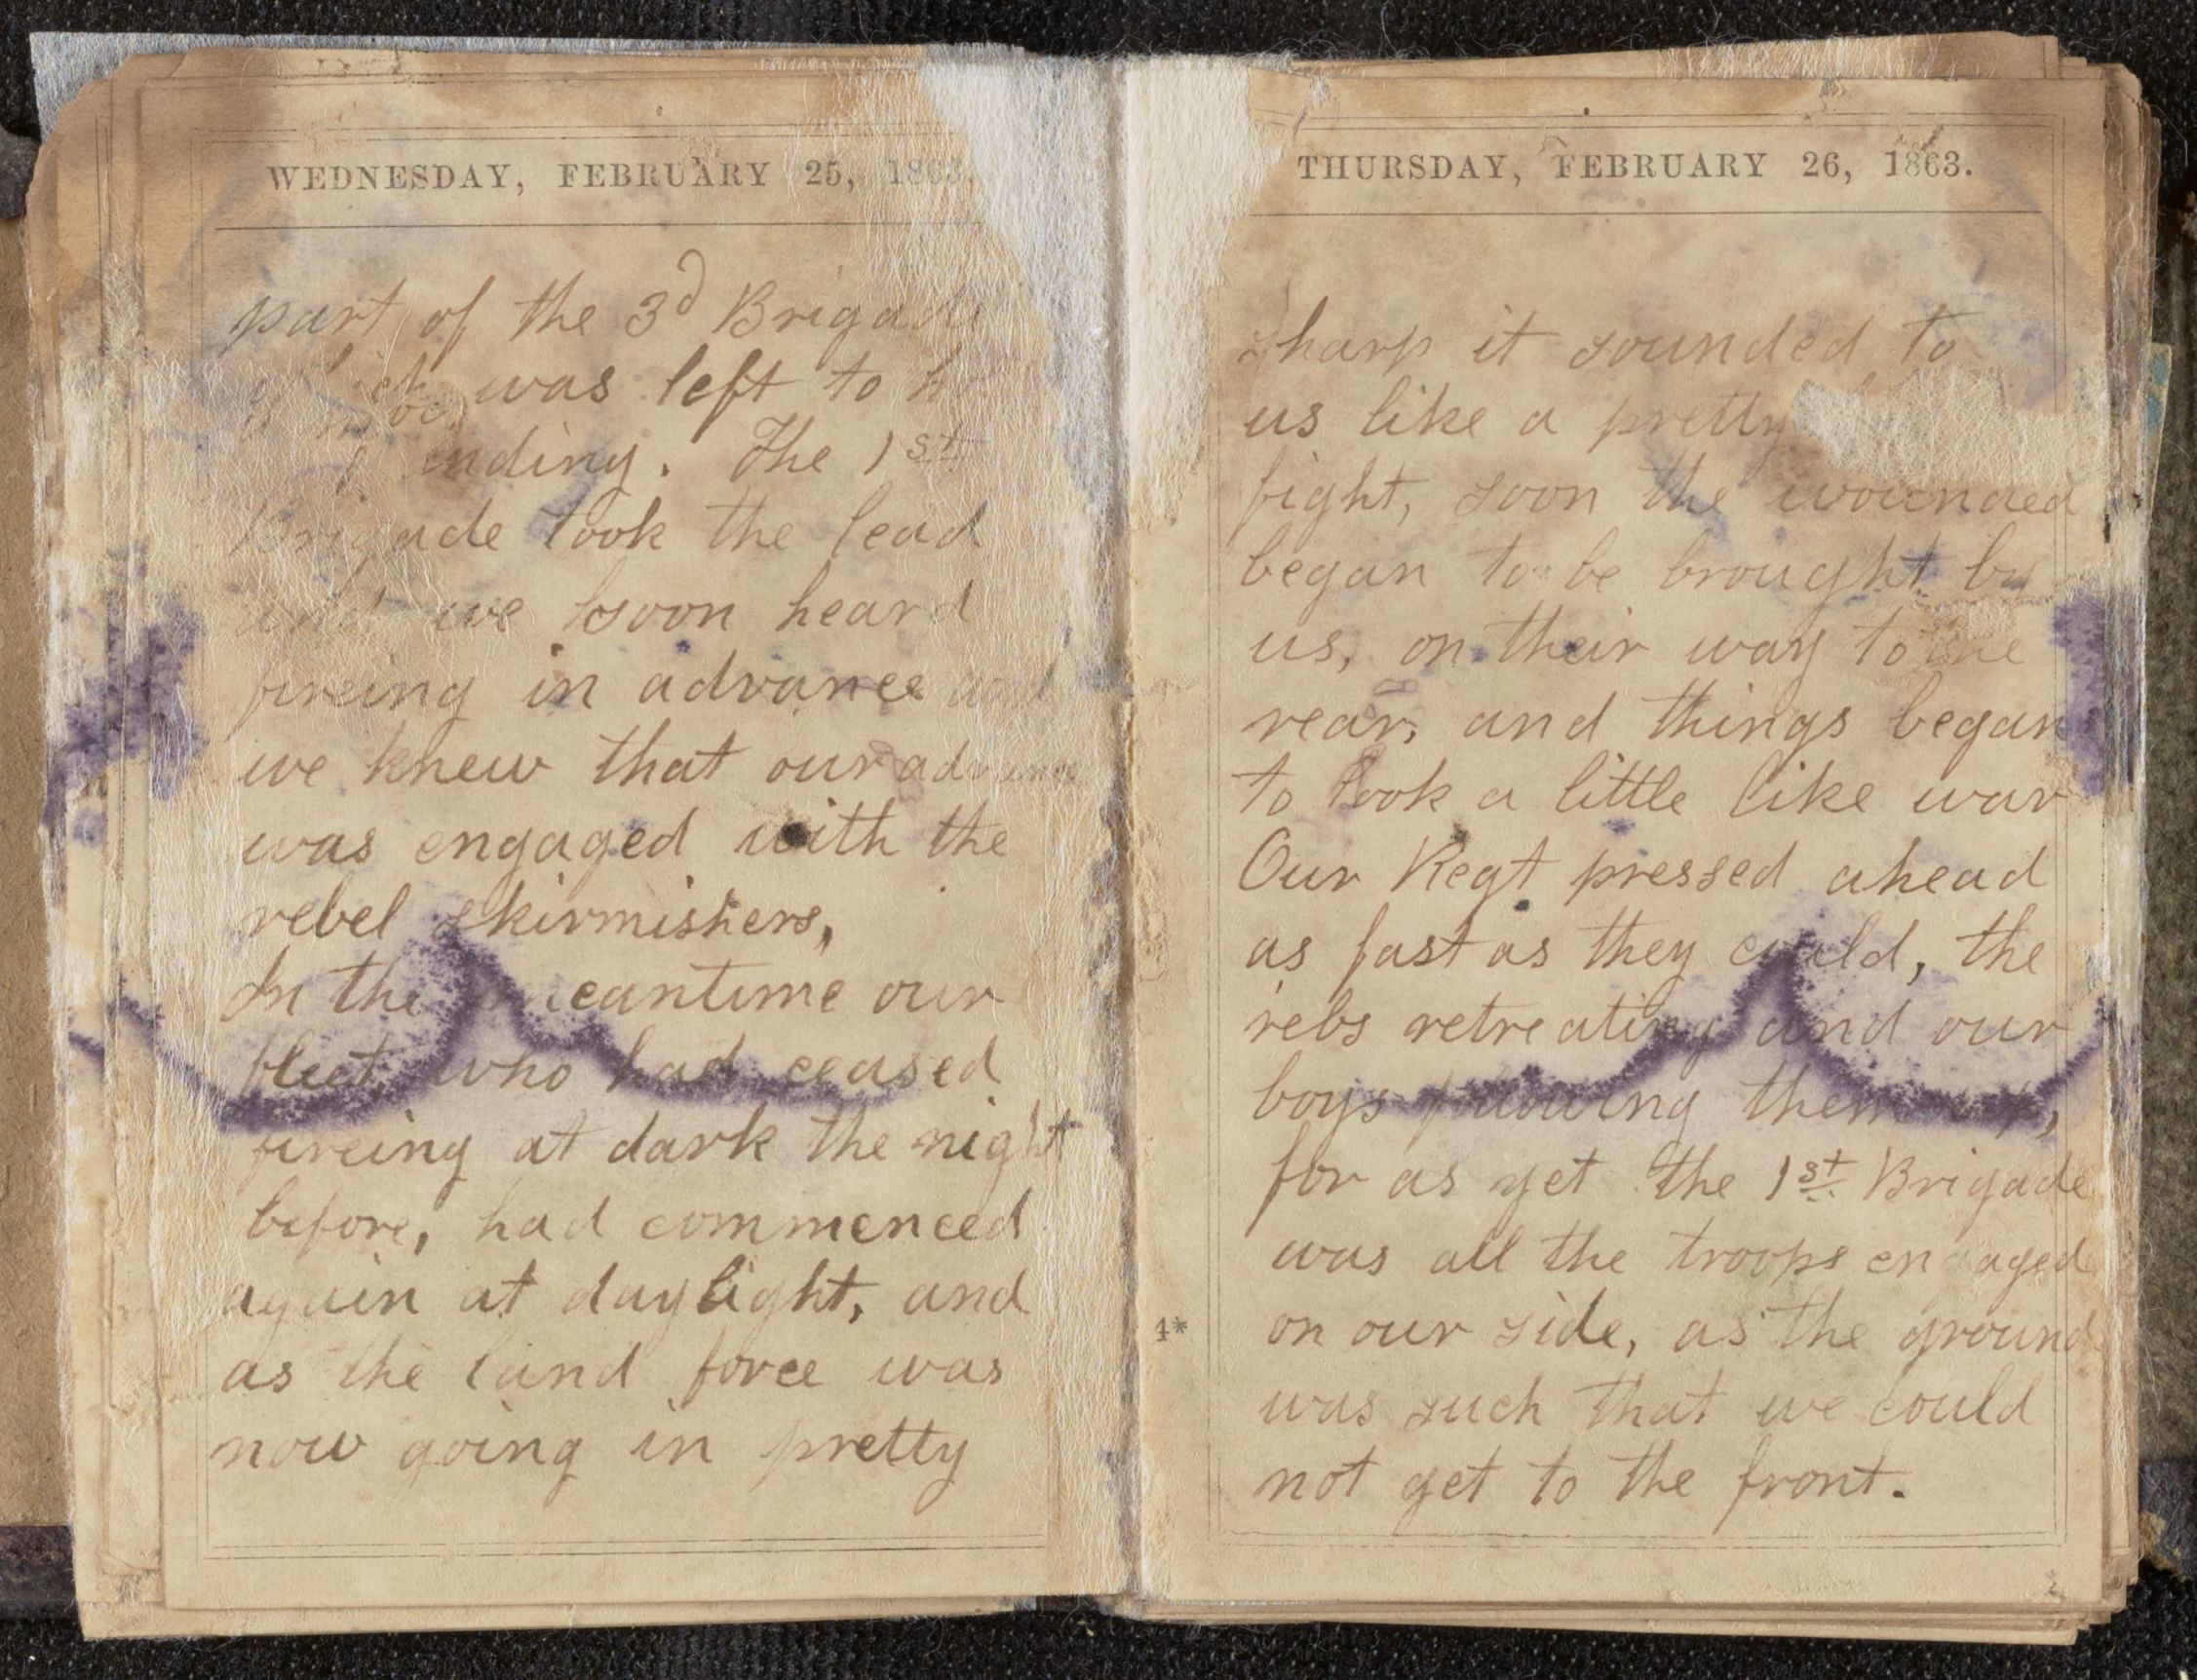 WEDNESDAY, FEBRUARY 25, 1863.
part of the 3d Brigade
which was left to
The 1st
Brigade took the lead
and we soon heard
fireing in advance and
we knew that our advance
was engaged with the
rebel skirmishers,
In the meantime our
fleet, who had ceased
fireing at dark the night
before, had commenced
again at daylight, and
as the land force was
now going in pretty
THURSDAY, FEBRUARY 26, 1863.
sharp it sounded to
us like a pretty
fight, soon the wounded
began to be brought by
us, on their way to the
rear, and things began
to look a little like war
Our Regt pressed ahead
as fast as they could, the
rebs retreating and our
boys following them up,
for as yet the 1st Brigade
4*
was all the troops engaged
on our side, as the ground
was such that we could
not get to the front.